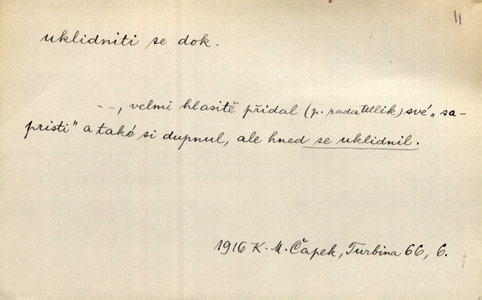 11
uklidniti se dok.
--, velmi hlasitě přidal (p. rada Ullik) své „sa-
pristi" a také si dupnul, ale hned se uklidnil.
1916 K. M. Čapek, Turbina 66, 6.